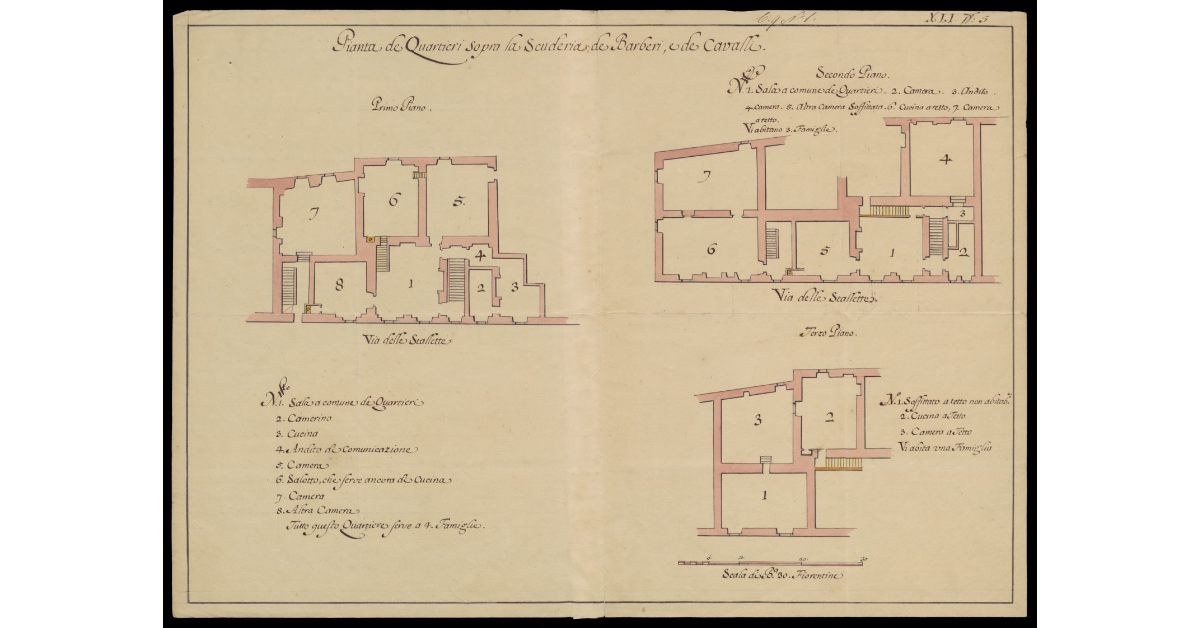 X.L.I
Pianta de Quartieri sopra la Scuderia de Barberi, e de Cavalli.
Primo Piano.
7
6
5.
8
1
4
2
3
Via delle Stallette
No. 1. Sala a comune de Quartieri
2. Camerino
3. Cucina
4. Andito di Comunicazione
5. Camera
6. Salotto, che serve ancora di Cucina
7 Camera
8. Altra Camera
Tutto questo Quartiere serve a 4. Famiglie.
Secondo Piano.
No. 1. Sala a comune de Quartieri. 2. Camera. 3. Andito.
4. Camera. 5. Altra Camera Soffittata. 6. Cucina a tetto, 7. Camera
a tetto.
Vi abitano 3. Famiglie.
7
4
3
6
5
1
2
Via delle Stallette.
Terzo Piano.
3
2
1
No. 1. Soffittato a tetto non abitab.
2. Cucina a Tetto
3. Camera a Tetto
Vi abita una Famiglia
Scala di Ba. 30. Fiorentine